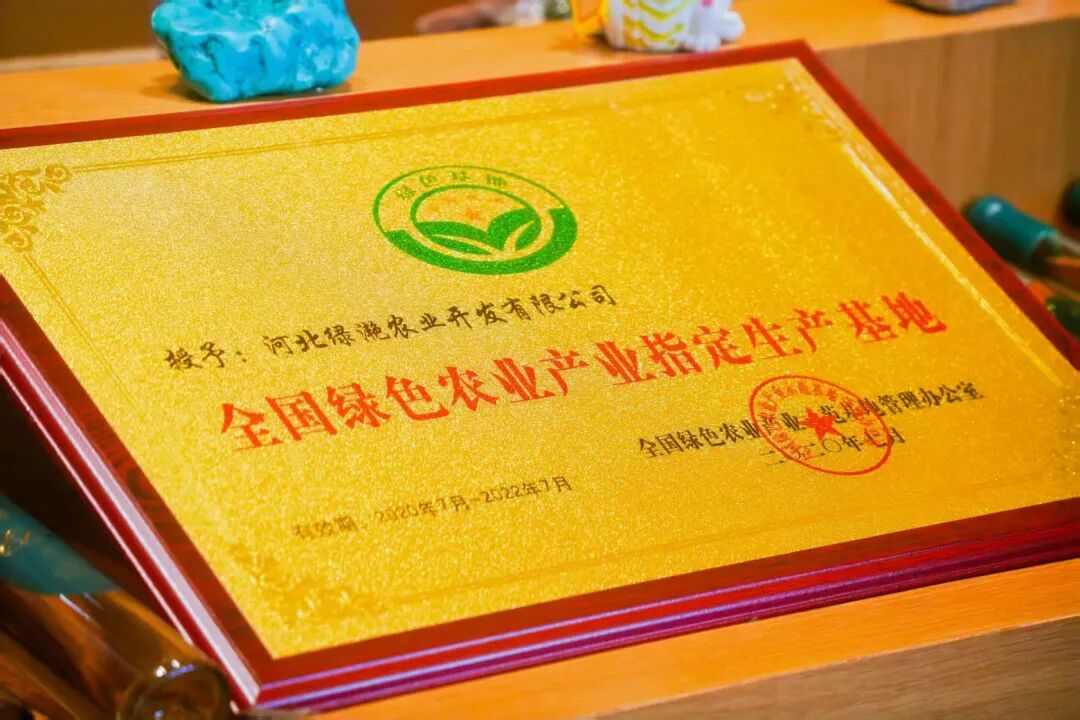 绿色基地
授予：河北绿滟农业开发有限公司
全国绿色农业产业指定生产基地
全国绿色农业产业示范基地管理办公室
二〇二〇年七月
有效期：2020年7月-2022年7月